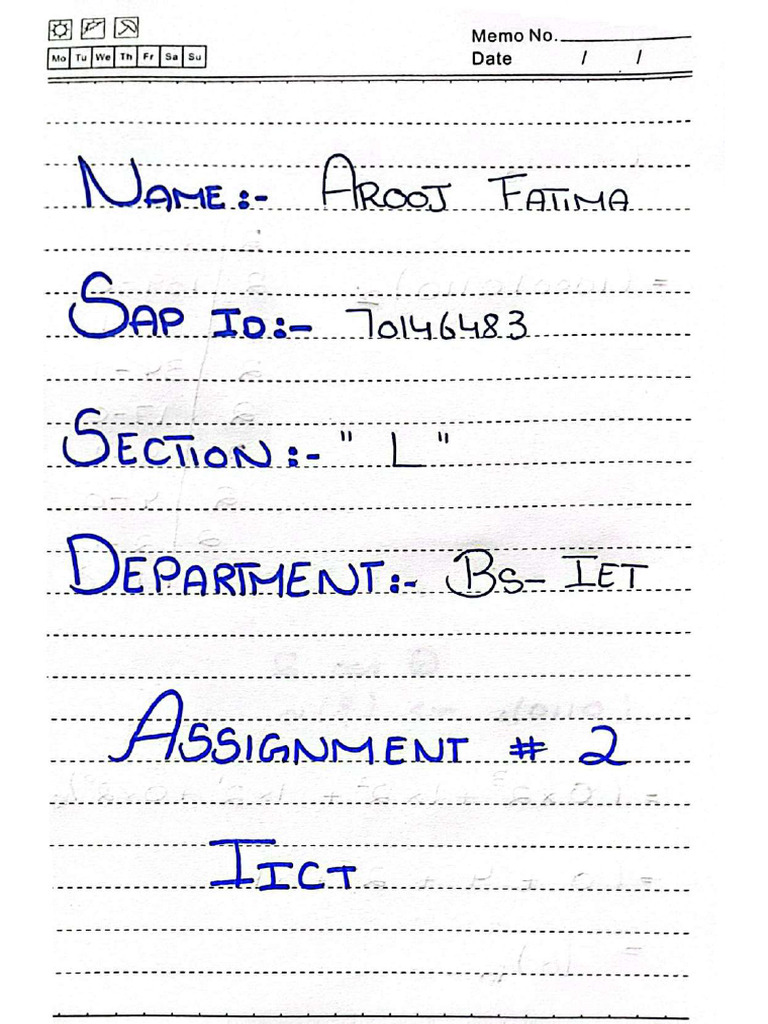 Memo No.
Mo Tu We Th Fr Sa Su
Date / /
NAME:- AROOJ FATIMA
SAP ID:- 70146483
SECTION:- " L "
DEPARTMENT:- BS- IET
ASSIGNMENT # 2
IICT